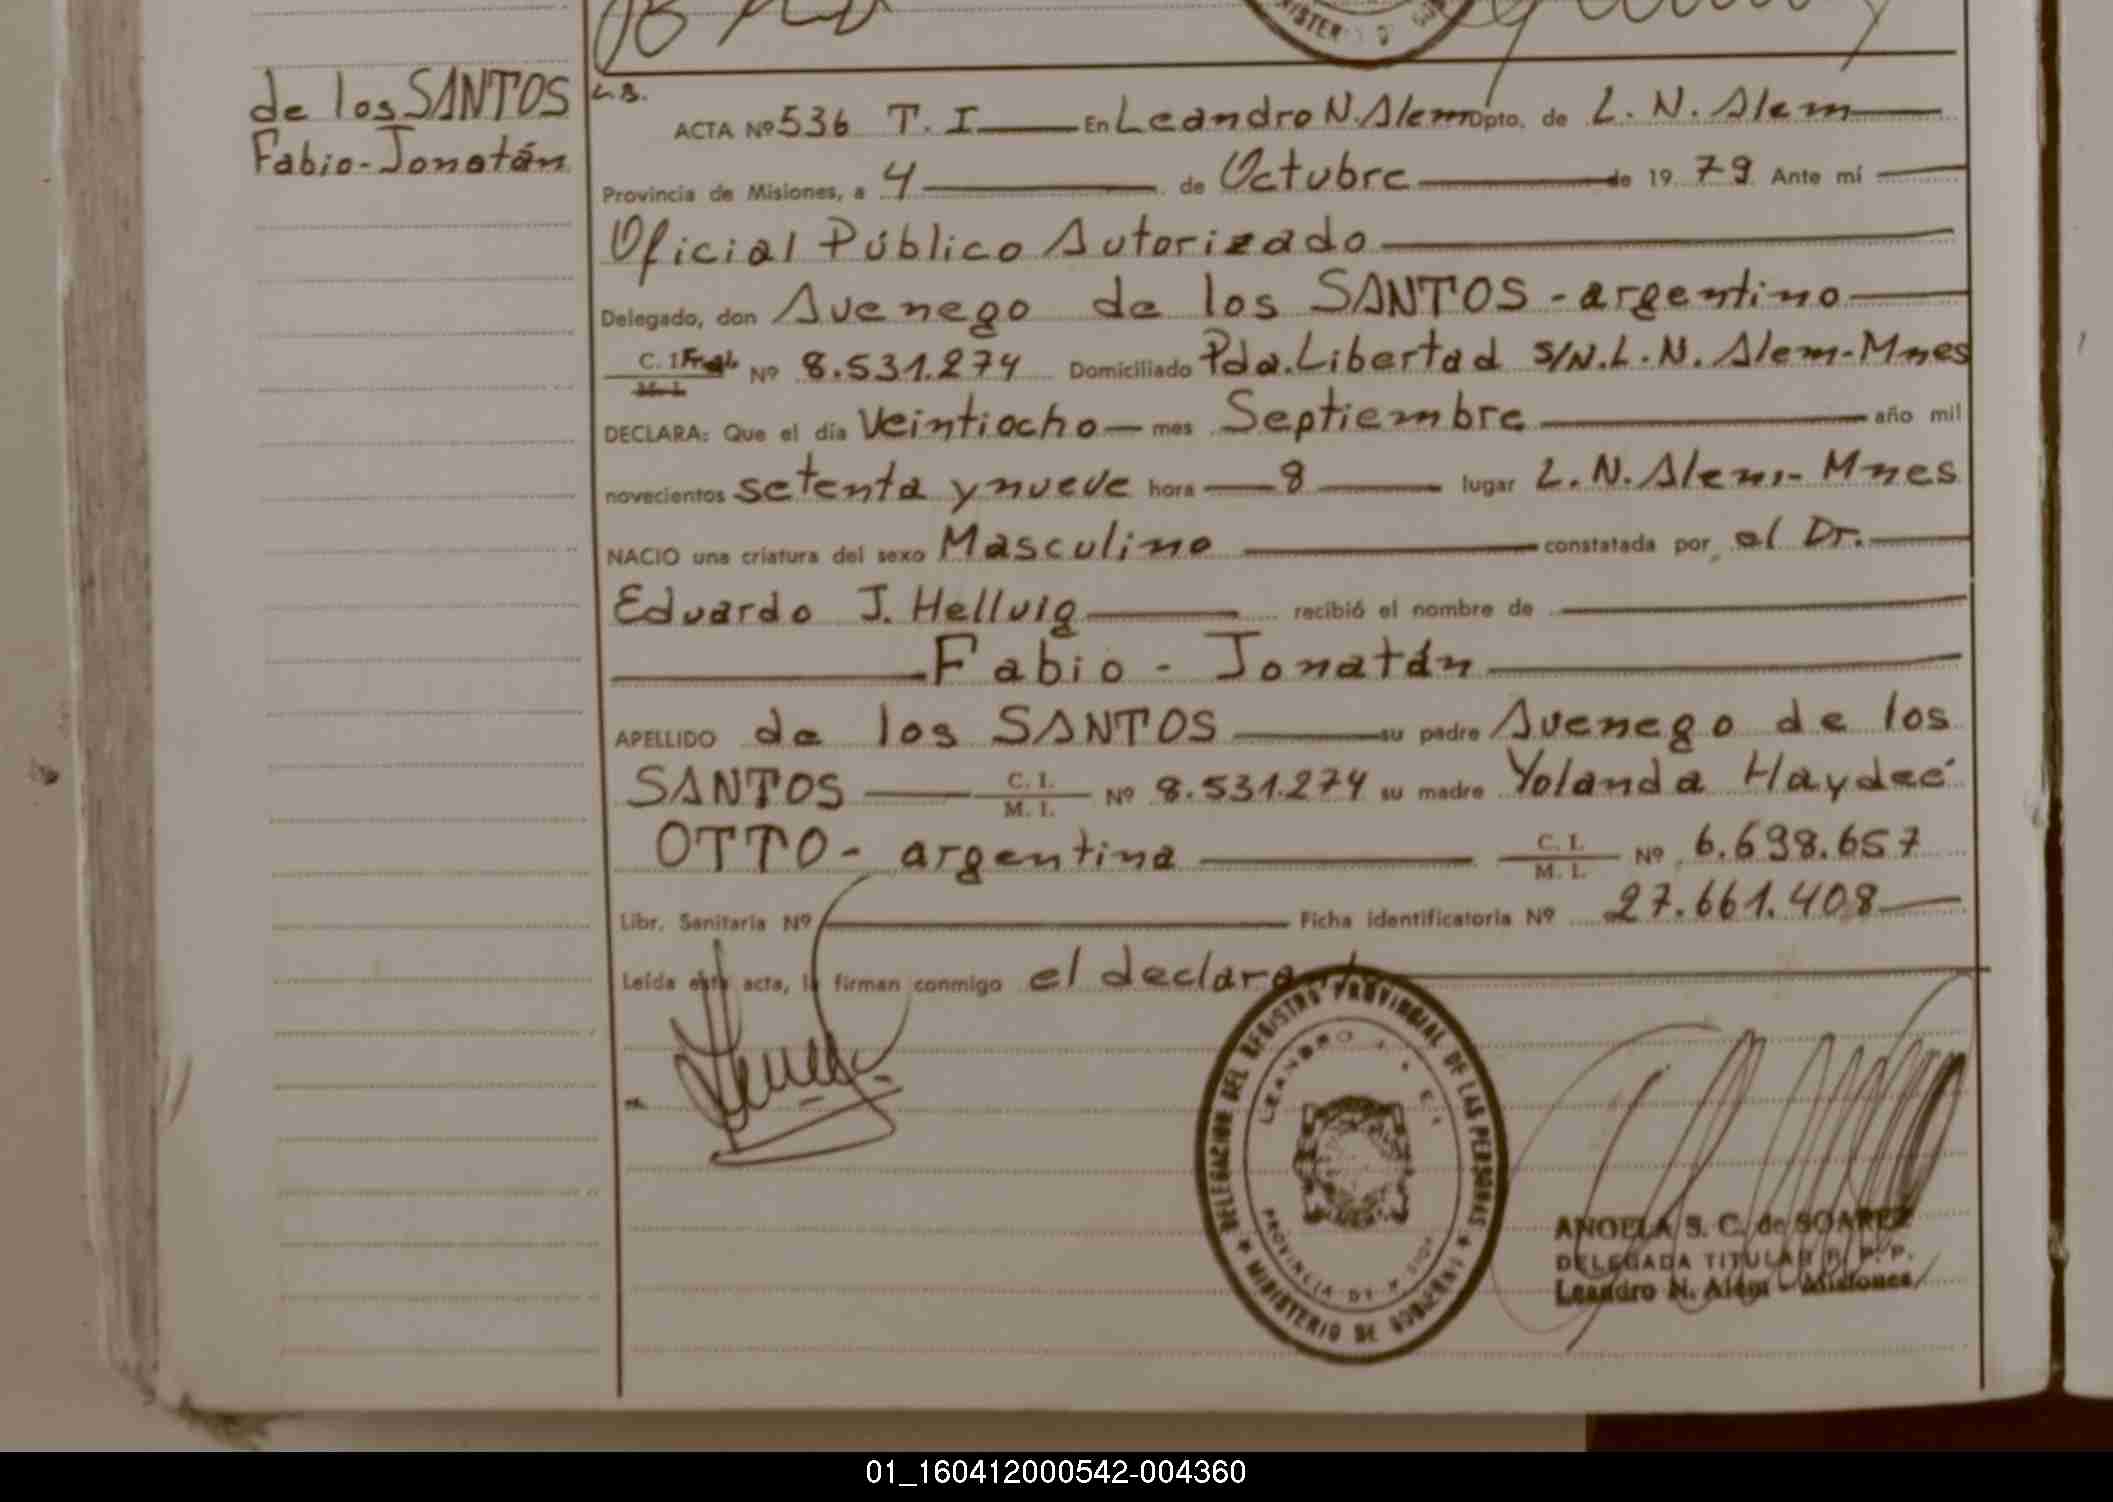 de los SANTOS
Fabio-Jonatán
L.S.
ACTA Nº 536 T. I En Leandro N. Alem Dpto. de L. N. Alem
Provincia de Misiones, a 4 de Octubre de 19 79 Ante mí
Oficial Público Autorizado
Delegado, don Avenego de los SANTOS - argentino
C. I. Fral. M. I. Nº 8.531.274 Domiciliado Pda. Libertad S/N. L. N. Alem-Mnes
DECLARA: Que el día Veintiocho mes Septiembre año mil
novecientos setenta y nueve hora 8 lugar L. N. Alem- Mnes
NACIO una criatura del sexo Masculino constatada por el Dr.
Eduardo J. Hellvig recibió el nombre de
Fabio - Jonatán
APELLIDO de los SANTOS su padre Avenego de los
SANTOS C. I. M. I. Nº 8.531.274 su madre Yolanda Haydeé
OTTO - argentina C. I. M. I. Nº 6.698.657
Libr. Sanitaria Nº Ficha identificatoria Nº 27.661.408
Leída esta acta, la firman conmigo el declarante
DELEGACION DEL REGISTRO PROVINCIAL DE LAS PERSONAS
LEANDRO N. ALEM
PROVINCIA DE MISIONES
MINISTERIO DE GOBIERNO
ANGELA S. C. de SOAREZ
DELEGADA TITULAR R. P. P.
Leandro N. Alem - Misiones
01_160412000542-004360